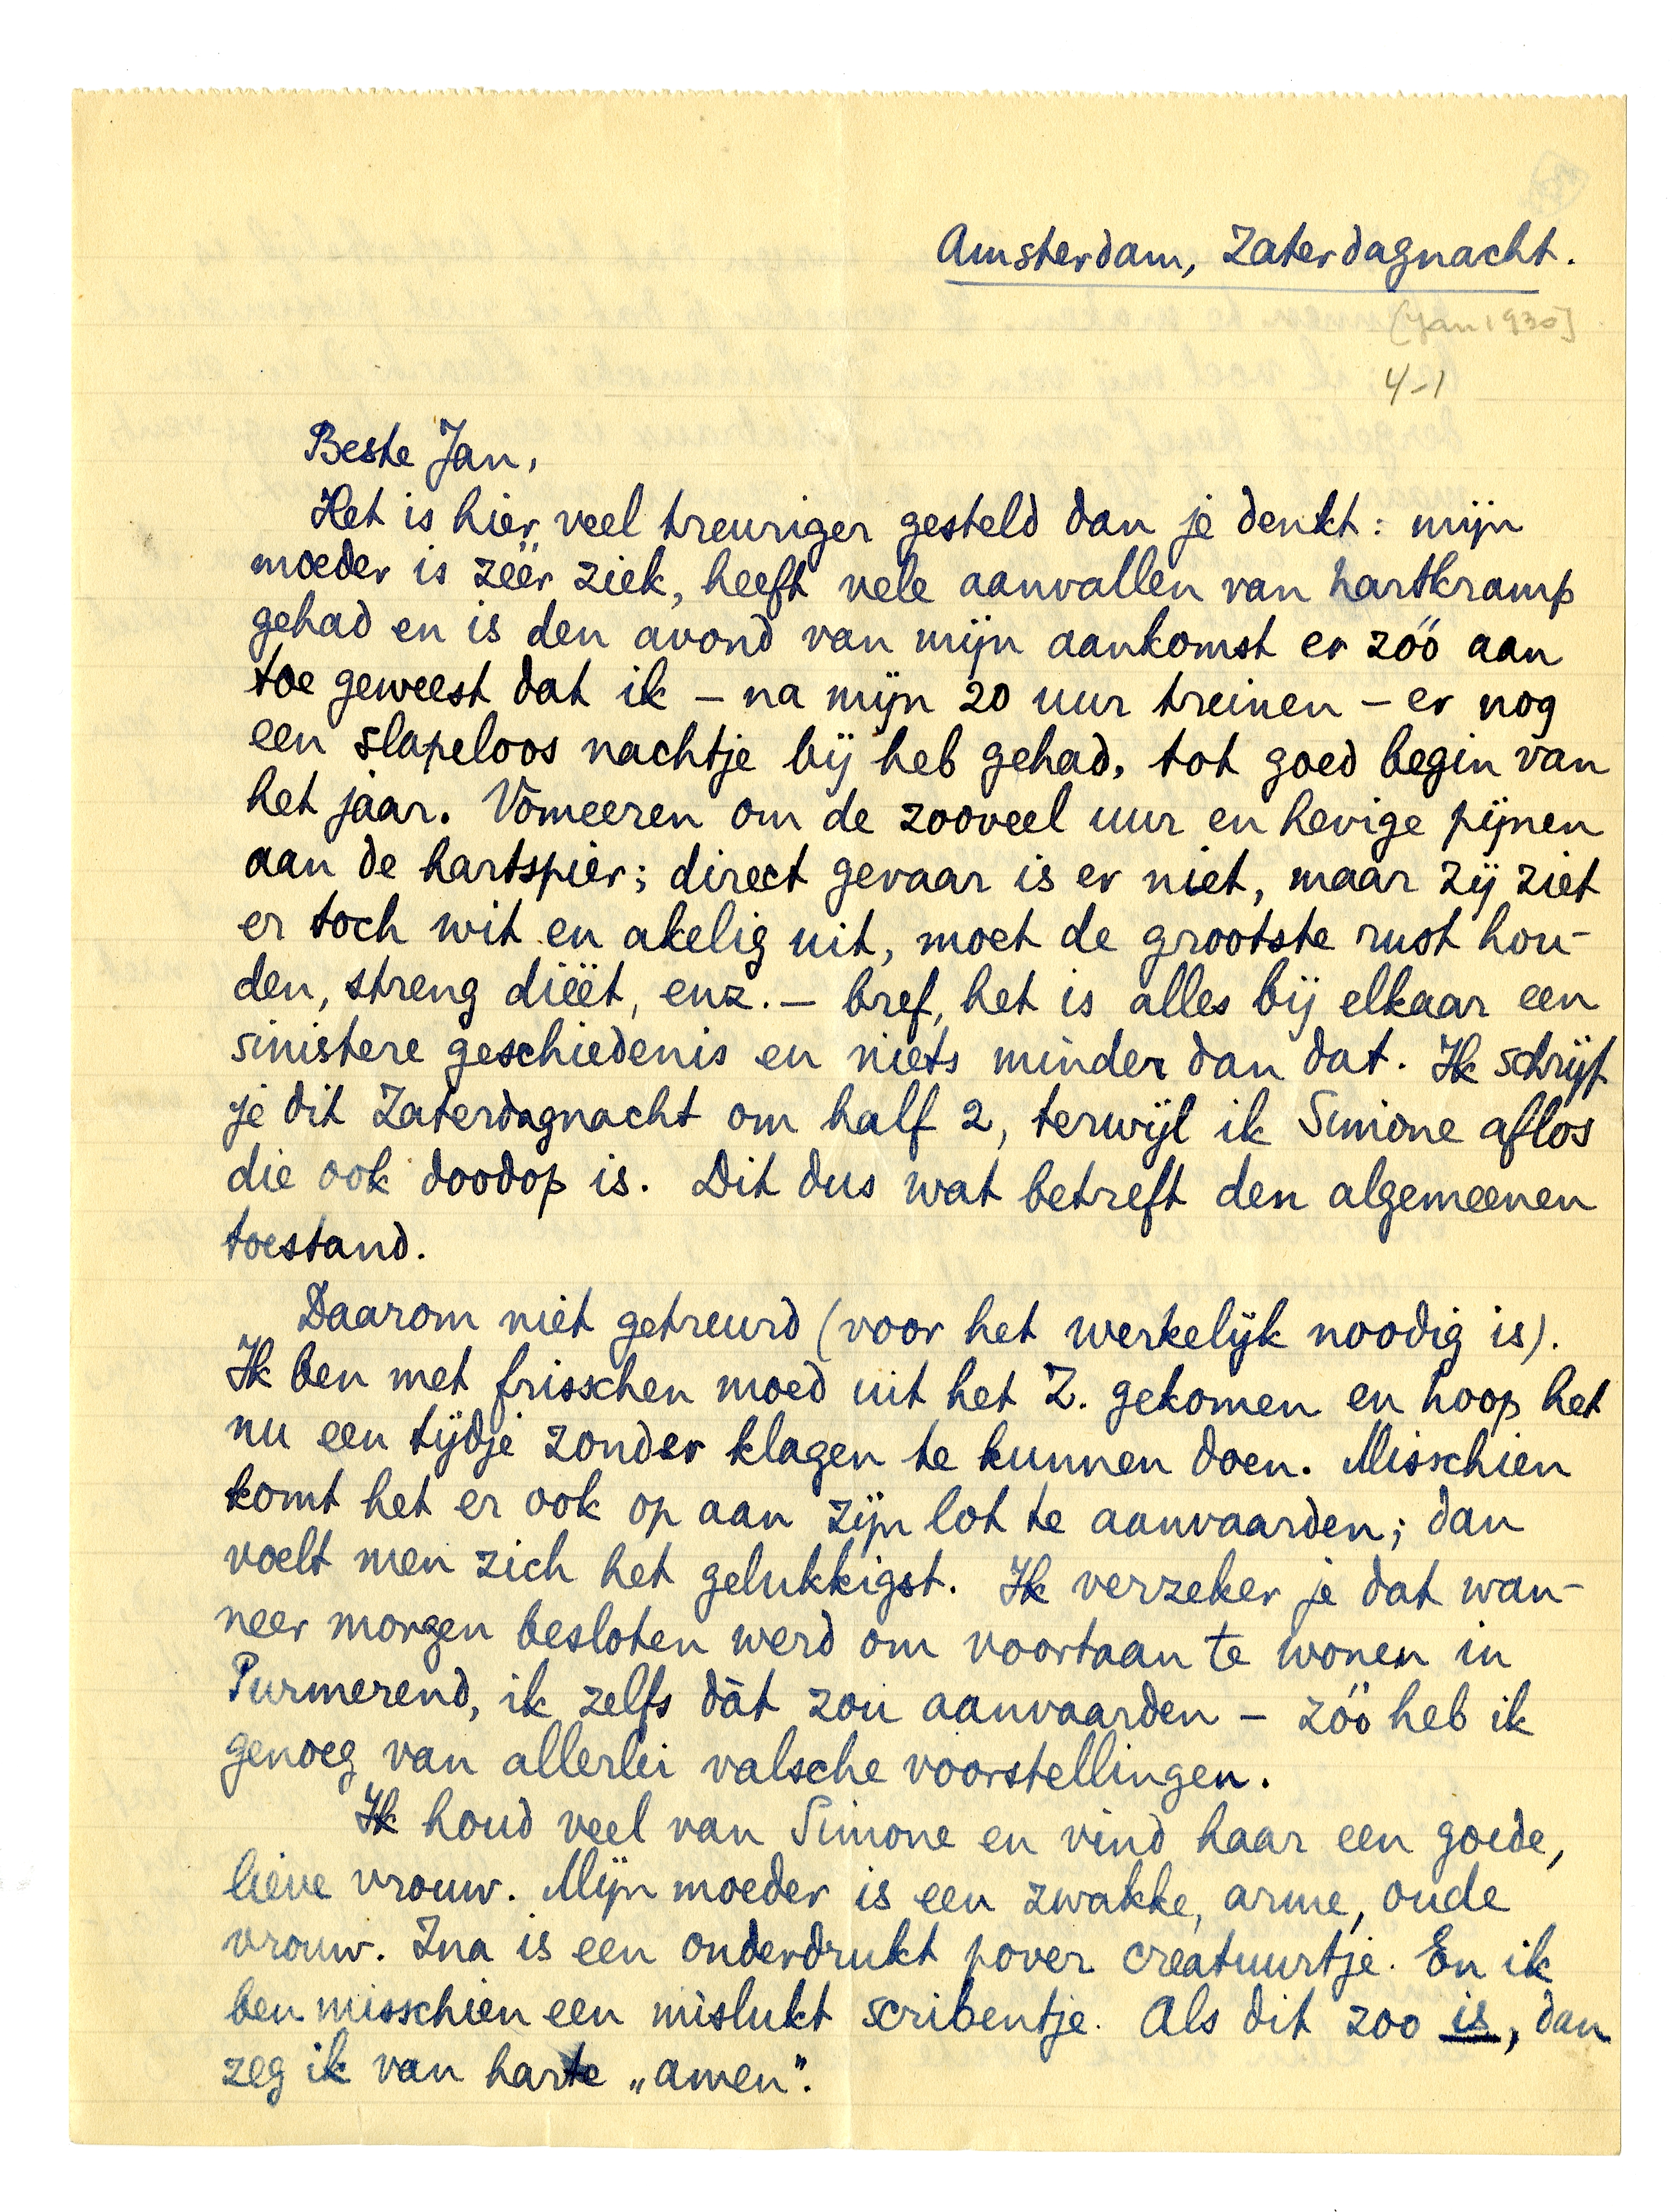 Amsterdam, Zaterdagnacht.
[Jan 1930]
4-1
Beste Jan,
Het is hier veel treuriger gesteld dan je denkt: mijn
moeder is zéér ziek, heeft vele aanvallen van hartkramp
gehad en is den avond van mijn aankomst er zóó aan
toe geweest dat ik – na mijn 20 uur treinen – er nog
een slapeloos nachtje bij heb gehad, tot goed begin van
het jaar. Vomeeren om de zooveel uur en hevige pijnen
aan de hartspier; direct gevaar is er niet, maar zij ziet
er toch wit en akelig uit, moet de grootste rust hou-
den, streng diëet, enz. – bref, het is alles bij elkaar een
sinistere geschiedenis en niets minder dan dat. Ik schrijf
je dit Zaterdagnacht om half 2, terwijl ik Simone aflos
die ook doodop is. Dit dus wat betreft den algemeenen
toestand.
Daarom niet getreurd (voor het werkelijk noodig is).
Ik ben met frisschen moed uit het Z. gekomen en hoop het
nu een tijdje zonder klagen te kunnen doen. Misschien
komt het er ook op aan zijn lot te aanvaarden; dan
voelt men zich het gelukkigst. Ik verzeker je dat wan-
neer morgen besloten werd om voortaan te wonen in
Purmerend, ik zelfs dàt zou aanvaarden – zóó heb ik
genoeg van allerlei valsche voorstellingen.
Ik houd veel van Simone en vind haar een goede,
lieve vrouw. Mijn moeder is een zwakke, arme, oude
vrouw. Ina is een onderdrukt pover creatuurtje. En ik
ben misschien een mislukt scribentje. Als dit zoo is, dan
zeg ik van harte „amen".